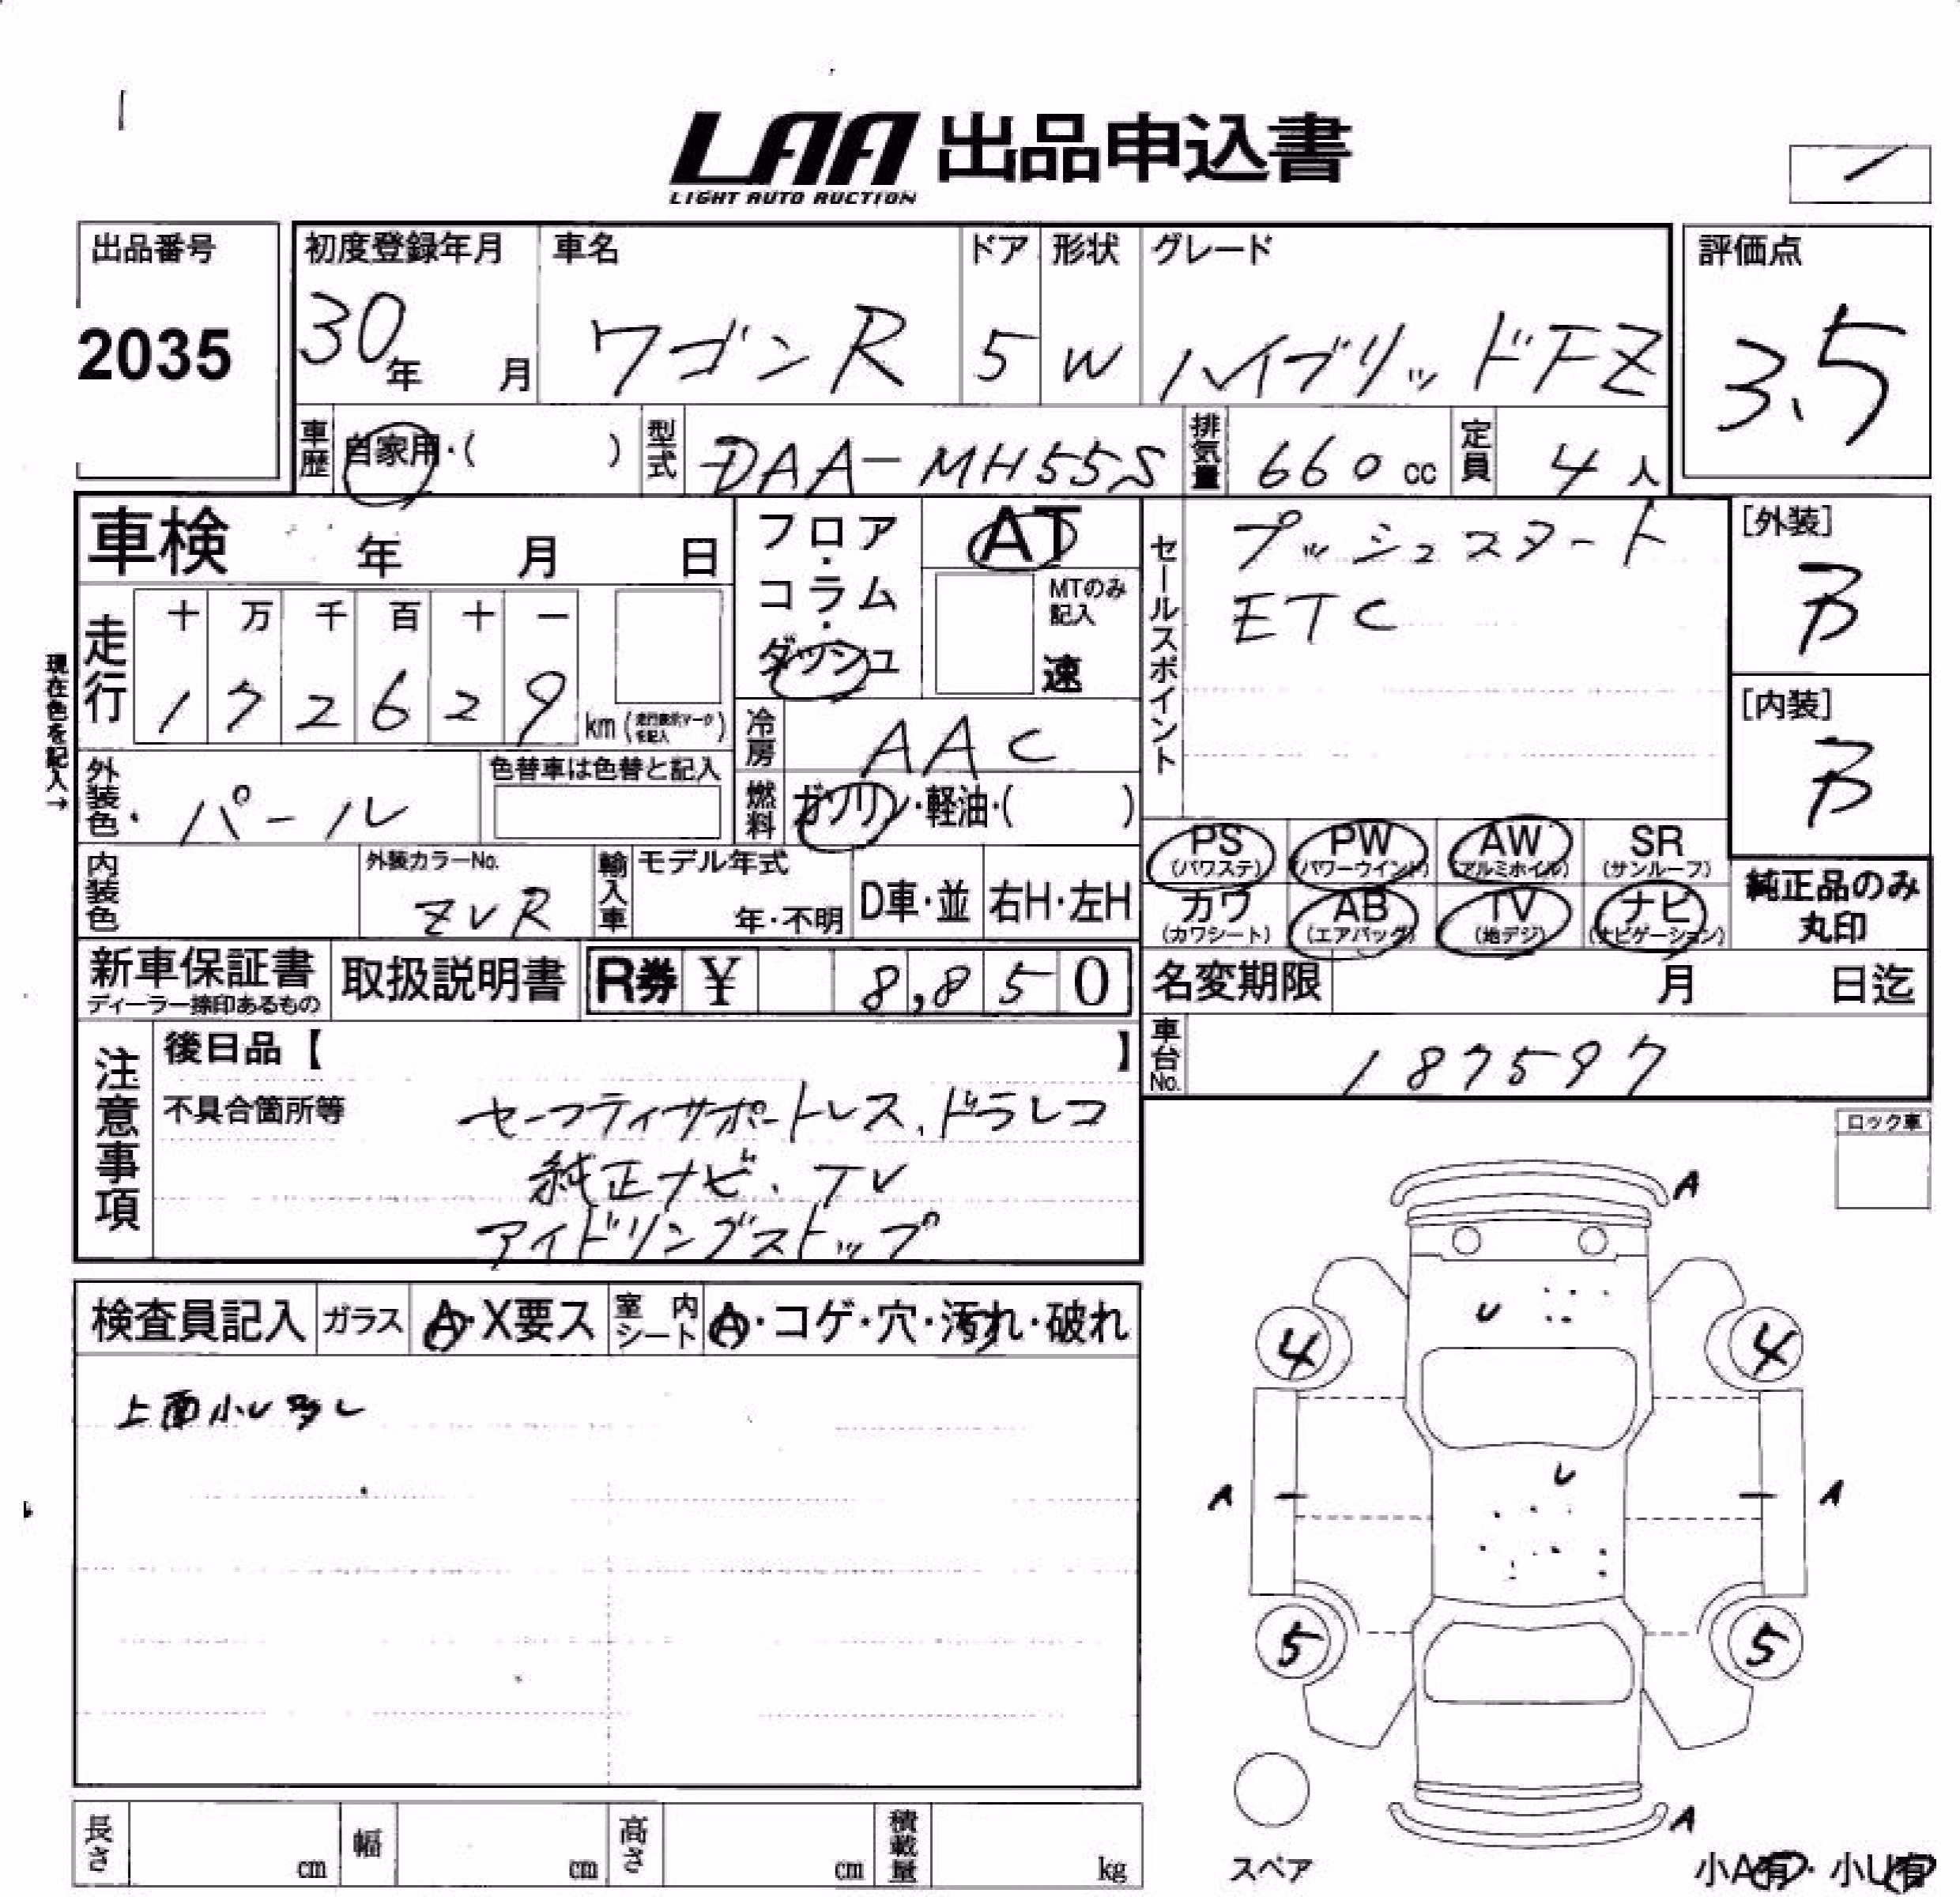 LAA 出品申込書
LIGHT AUTO AUCTION
出品番号
2035
初度登録年月
30年 月
車名
ワゴンR
ドア
5
形状
W
グレード
ハイブリッドFZ
評価点
3.5
車歴 自家用・( )
型式 DAA-MH55S
排気量 660cc
定員 4人
車検 年 月 日
フロア・コラム・ダッシュ
AT
MTのみ記入
速
セールスポイント
プッシュスタート
ETC
[外装]
B
[内装]
B
現在色を記入→
走行
十 万 千 百 十 一
1 7 2 6 2 9 km (走行表示マークを記入)
冷房 AAC
外装色 パール
色替車は色替と記入
燃料 ガソリン・軽油・( )
PS (パワステ) PW (パワーウインド) AW (アルミホイル) SR (サンルーフ)
カワ (カワシート) AB (エアバッグ) TV (地デジ) ナビ (ナビゲーション)
純正品のみ丸印
内装色
外装カラーNo.
ZVR
輸入車 モデル年式
年・不明
D車・並 右H・左H
新車保証書
ディーラー捺印あるもの
取扱説明書
R券 ¥ 8,850
名変期限 月 日迄
車台No. 187597
注意事項
後日品【 】
不具合箇所等
セーフティサポートレス、ドラレコ
純正ナビ、TV
アイドリングストップ
ロック車
検査員記入 ガラス A・X要ス 室内シート A・コゲ・穴・汚れ・破れ
上面小U多し
A
U
4 4
U
A A
5 5
A
スペア
小A有・小U有
長さ cm 幅 cm 高さ cm 積載量 kg